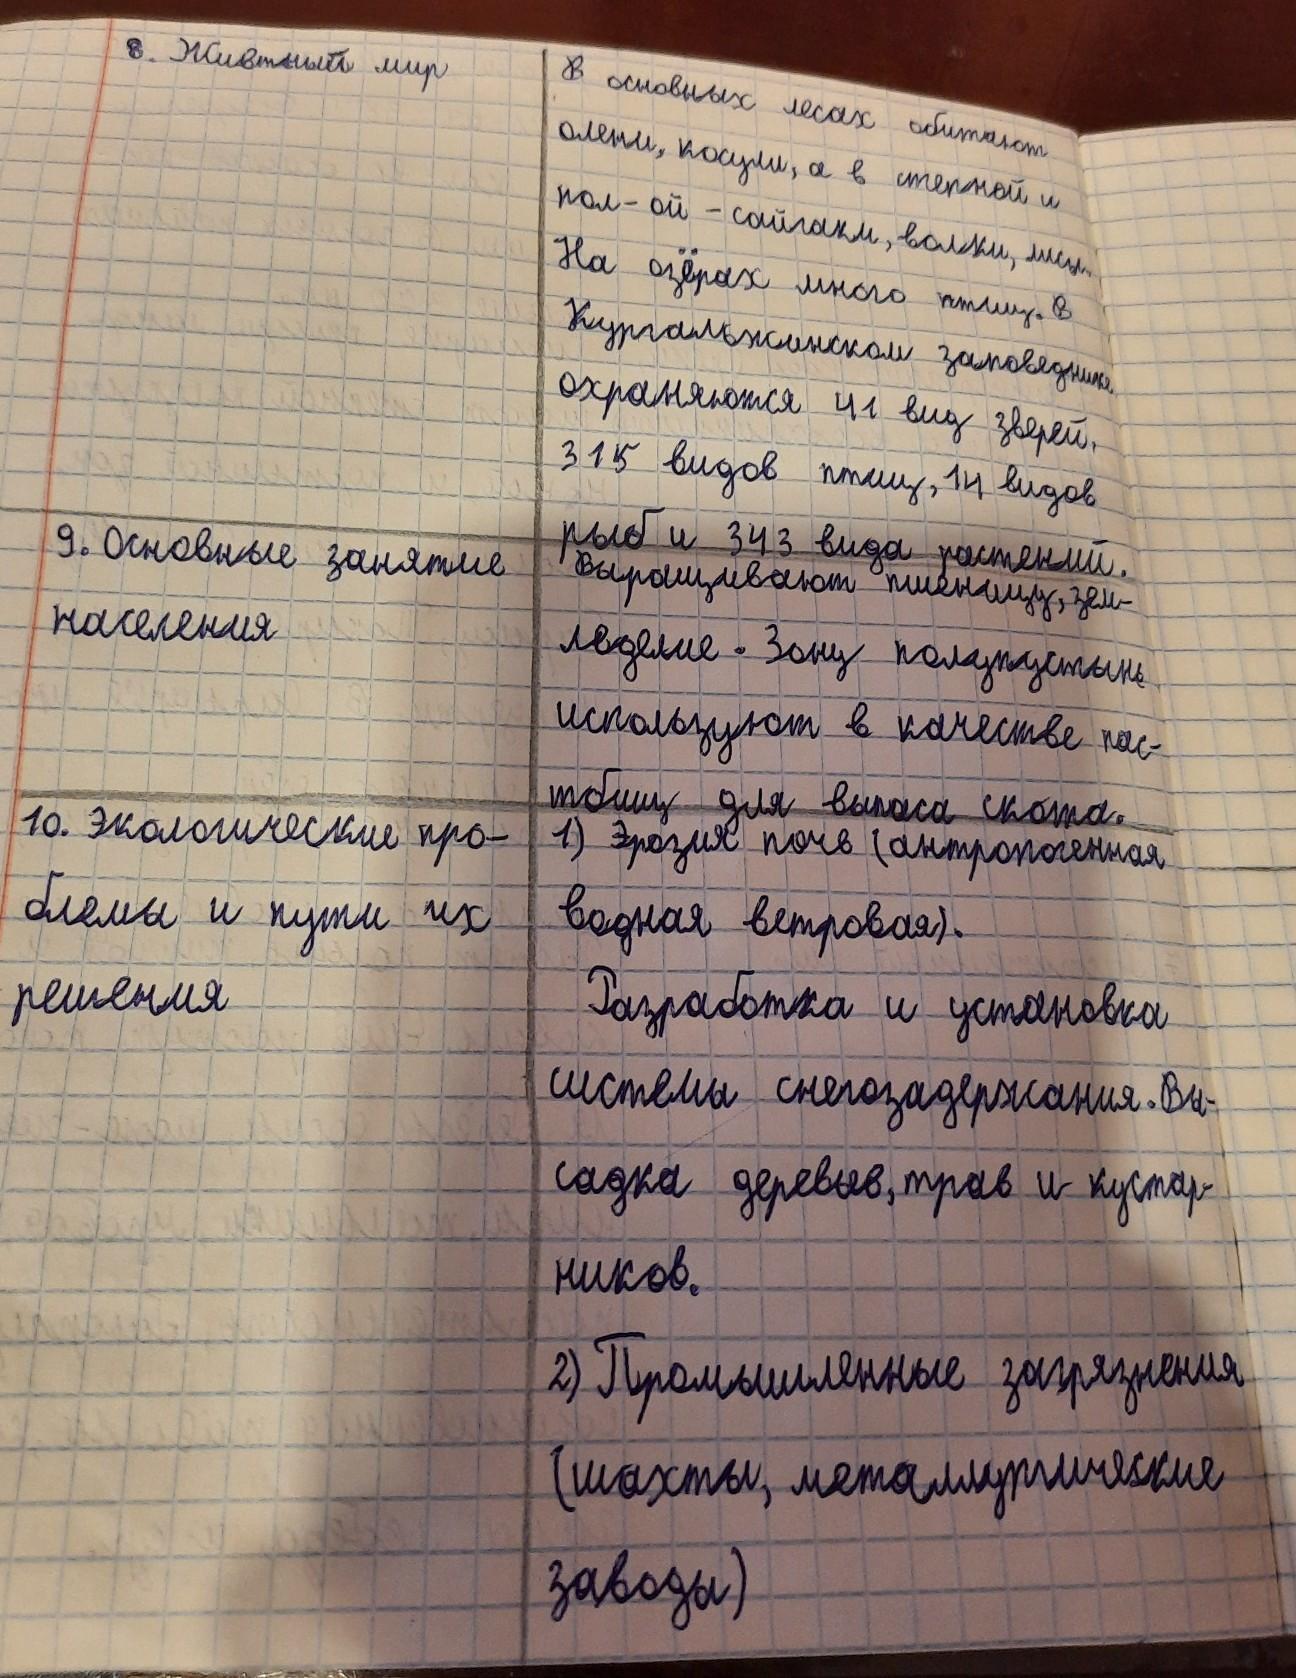 8. Живтный мир
В основных лесах обитают
олени, косули, а в степной и
пол-ой - сайгаки, волки, лисы.
На озёрах много птиц. В
Кургальжинском заповеднике
охраняются 41 вид зверей,
315 видов птиц, 14 видов
рыб и 343 вида растений.
9. Основные занятие
населения
Выращивают пшеницу, зем-
леделие. Зону полупустынь
используют в качестве пас-
тбищ для выпаса скота.
10. Экологические про-
блемы и пути их
решения
1) Эрозия почв (антропогенная
водная ветровая).
Разработка и установка
системы снегозадержания. Вы-
садка деревьев, трав и кустар-
ников.
2) Промышленные загрязнения
(шахты, металлургические
заводы)